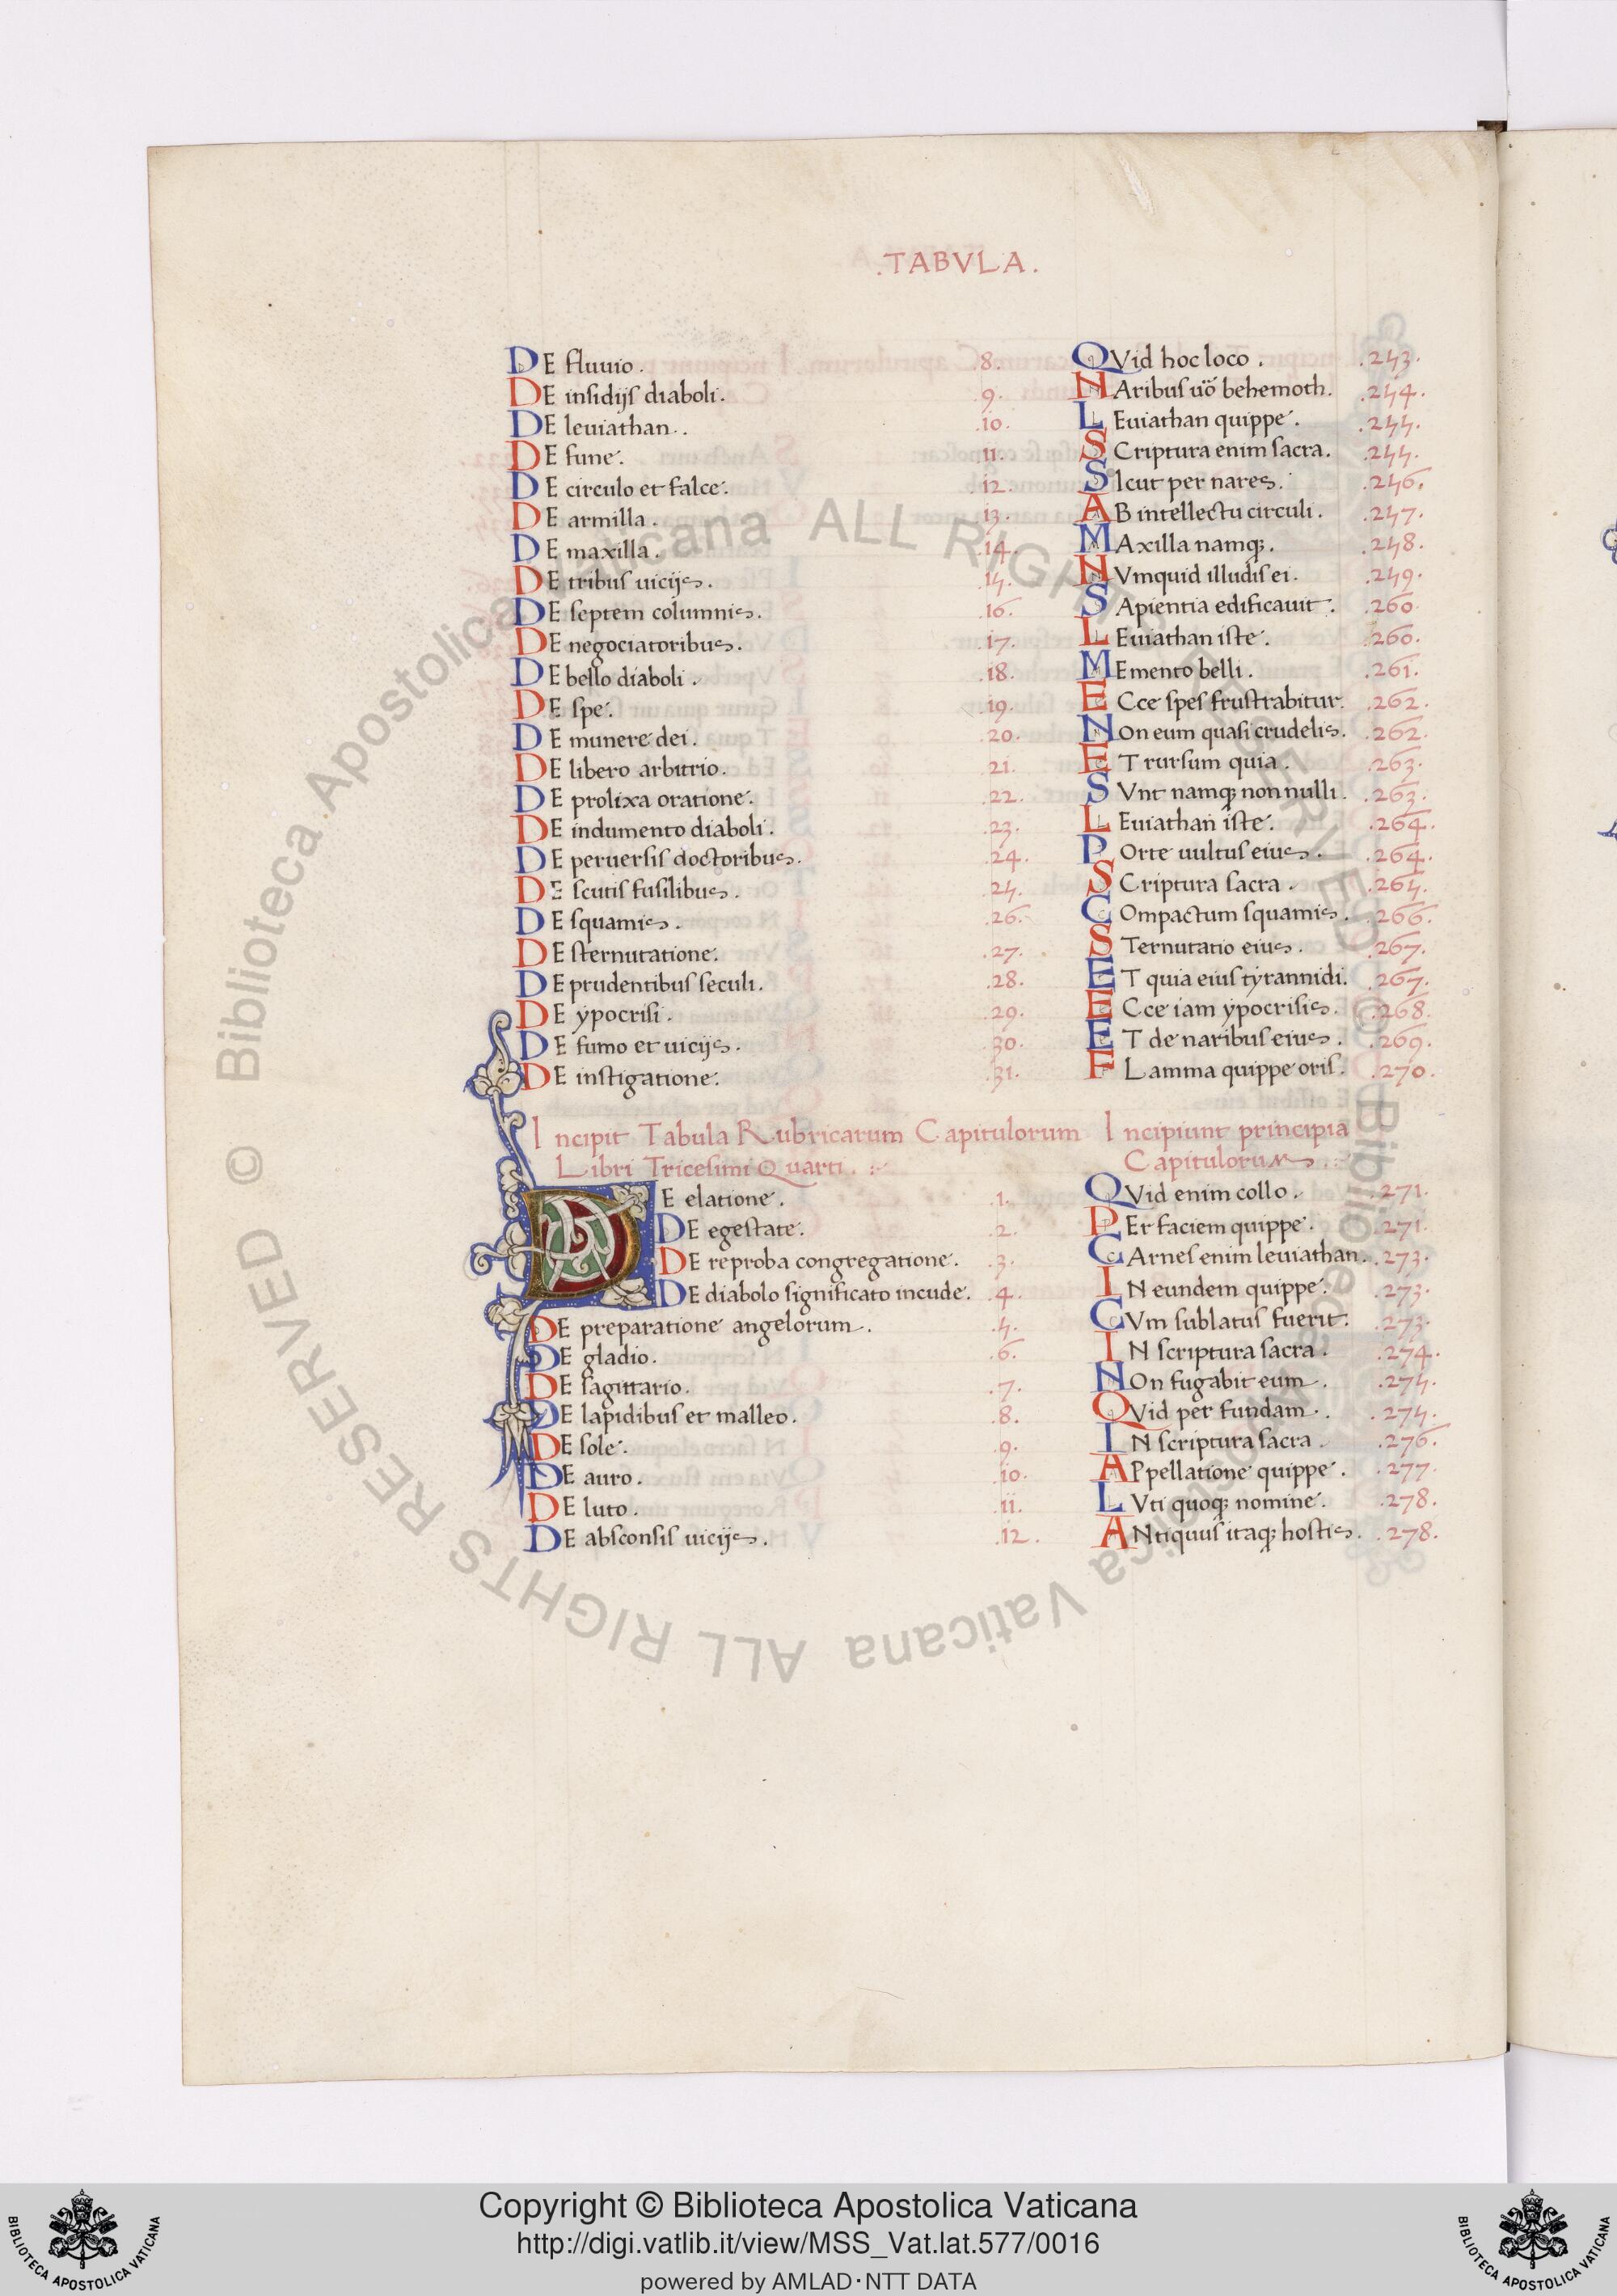 .TABVLA.
DE fluuio. .8. QVid hoc loco. .253.
DE insidijs diaboli. .9. NAribus uo behemoth. .254.
DE leuiathan.. .10. LEuiathan quippe. .255.
DE fune. .11. SCriptura enim sacra. .255.
DE circulo et falce. .12. SIcut per nares. .256.
DE armilla. .13. AB intellectu circuli. .257.
DE maxilla. .14. MAxilla namq;. .258.
DE tribus uicijs. .15. NVmquid illudis ei. .259.
DE septem columnis. .16. SApientia edificauit. .260.
DE negociatoribus. .17. LEuiathan iste. .260.
DE bello diaboli. .18. MEmento belli. .261.
DE spe. .19. ECce spes frustrabitur. .262.
DE munere dei. .20. NOn eum quasi crudelis. .262.
DE libero arbitrio. .21. ET rursum quia. .263.
DE prolixa oratione. .22. SVnt namq; non nulli. .263.
DE indumento diaboli. .23. LEuiathan iste. .264.
DE peruersis doctoribus. .24. POrte uultus eius. .264.
DE scutis fusilibus. .25. SCriptura sacra. .265.
DE squamis. .26. COmpactum squamis. .266.
DE sternutatione. .27. STernutatio eius. .267.
DE prudentibus seculi. .28. ET quia eius tyrannidi. .267.
DE ypocrisi. .29. ECce iam ypocrisis. .268.
DE fumo et uicijs. .30. ET de naribus eius. .269.
DE instigatione. .31. FLamma quippe oris. .270.
Incipit Tabula Rubricarum Capitulorum Incipiunt principia
Libri Tricesimi Quarti. Capitulorum.
DE elatione. .1. QVid enim collo. .271.
DE egestate. .2. PEr faciem quippe. .271.
DE reproba congregatione. .3. CArnes enim leuiathan. .273.
DE diabolo significato incude. .4. IN eundem quippe. .273.
DE preparatione angelorum. .5. CVm sublatus fuerit. .273.
DE gladio. .6. IN scriptura sacra. .274.
DE sagittario. .7. NOn fugabit eum. .275.
DE lapidibus et malleo. .8. QVid per fundam. .275.
DE sole. .9. IN scriptura sacra. .276.
DE auro. .10. APpellatione quippe. .277.
DE luto. .11. LVti quoq; nomine. .278.
DE absconsis uicijs. .12. ANtiquus itaq; hostis. .278.
© Biblioteca Apostolica Vaticana ALL RIGHTS RESERVED © Biblioteca Apostolica Vaticana ALL RIGHTS RESERVED
Copyright © Biblioteca Apostolica Vaticana
http://digi.vatlib.it/view/MSS_Vat.lat.577/0016
powered by AMLAD·NTT DATA
BIBLIOTECA APOSTOLICA VATICANA
BIBLIOTECA APOSTOLICA VATICANA